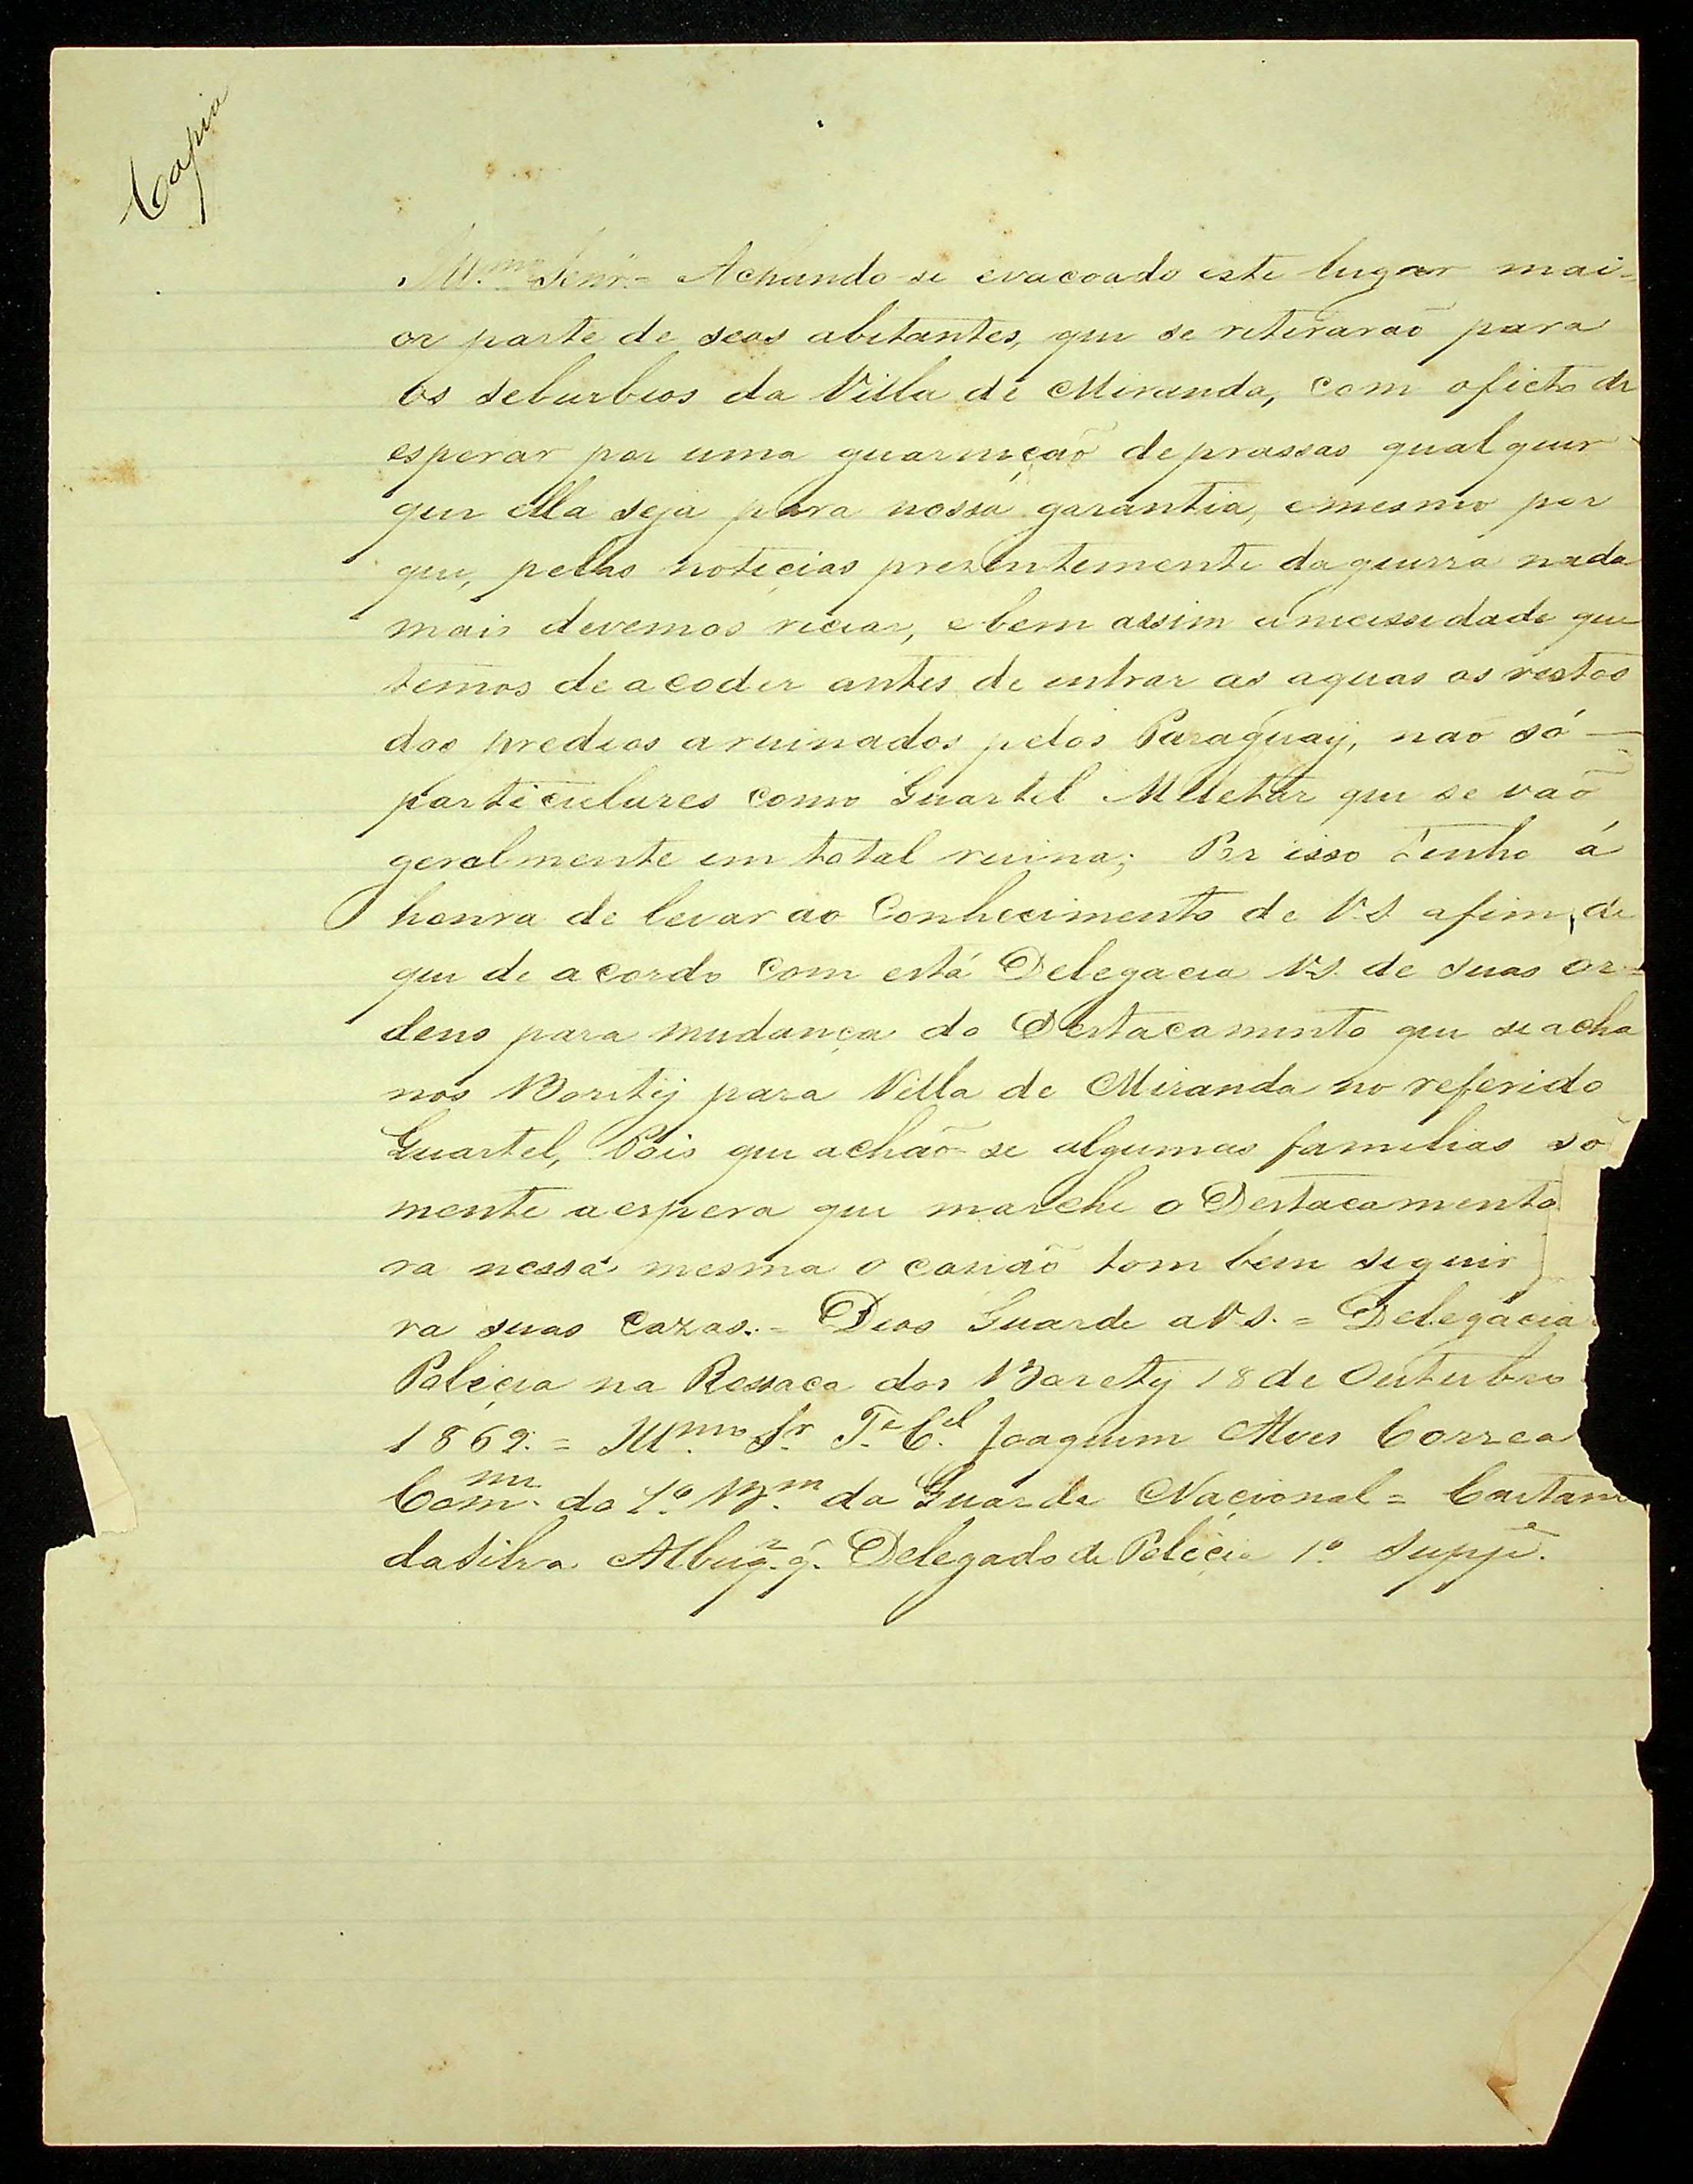 Copia
Illmo Senr.= Achando-se evacoado este lugar mai-
or parte de seos abitantes, que se retirarão para
os seburbios da Villa de Miranda, com oficto de
esperar por uma guarnição de prassas qualquer
que ella seja para nossa garantia, e mesmo por
que, pelas noticias prezentemente da guerra nada
mais devemos reciar, e bem assim a necessidade que
temos de acoder antes de entrar as aguas os restos
dos predios aruinados pelos Paraguay, não só
particulares como Quartel Meletar que se vaõ
geralmente em total ruina; Por isso Tenho á
honra de levar ao Conhecimento de V.S. afim de
que de acordo com está Delegacia V.S. de suas or=
dens para mudança do Destacamento que se acha
nos Boritÿ para Villa de Miranda no referido
Quartel, Pois que achaõ-se algumas familias só
mente a espera que marche o Destacamento
ra nessa mesma ocasiaõ tom bem seguir
ra suas cazas.= Deos Guarde a V.S.= Delegacia
Policia na Ressaca dos Boretÿ 18 de Outubro
1869.= Illmo Sr. Te. Cel. Joaquim Alves Correa
Comme. do 1º. Bm. da Guarda Nacional = Caetano
da Silva Albuq.e Delegado de Policia 1º. Suppe.